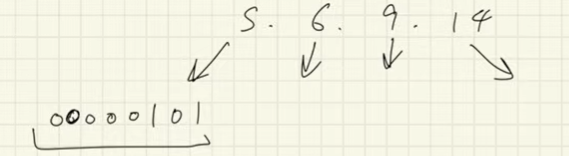 5. 6. 9. 14
00000101